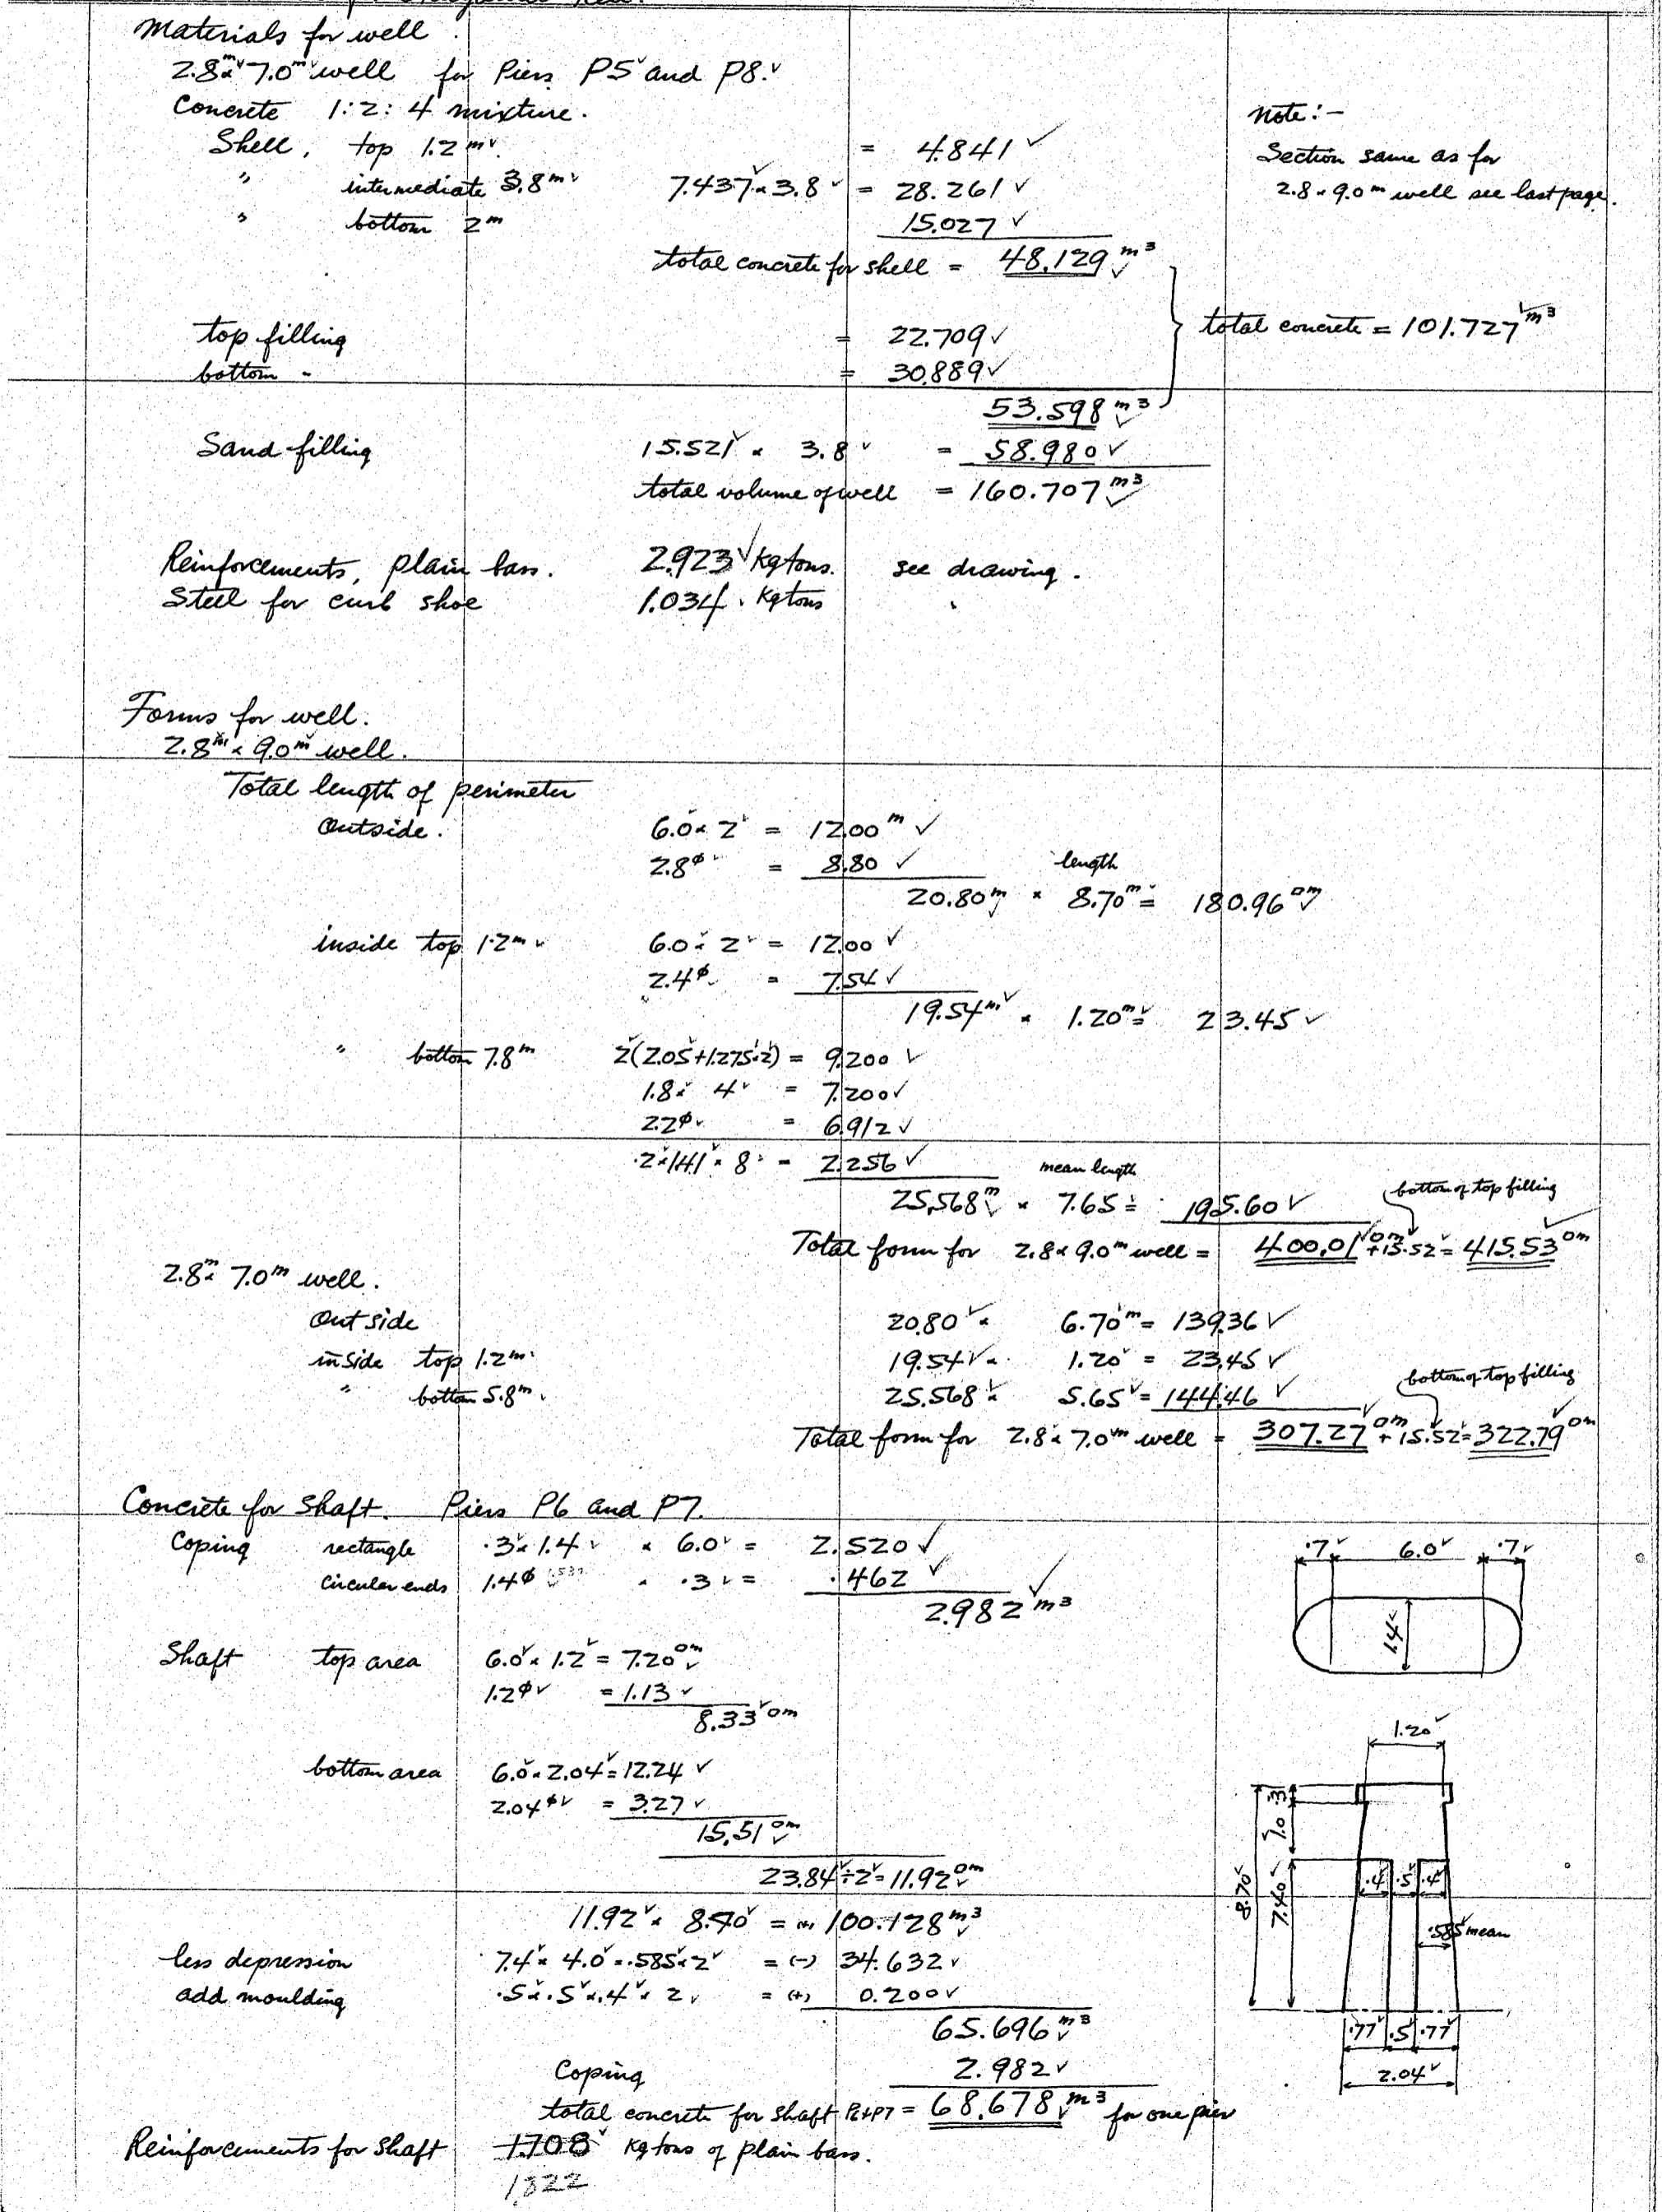 Materials for well
2.8m x 7.0m well for Piers P5 and P8.
Concrete 1:2:4 mixture.
Shell, top 1.2m = 4.841
" intermediate 3.8m 7.437 x 3.8 = 28.261
" bottom 2m 15.027
total concrete for shell = 48.129 m³
Note:-
Section same as for
2.8 x 9.0m well see last page.
top filling = 22.709
bottom " = 30.889
53.598 m³
total concrete = 101.727 m³
Sand filling 15.521 x 3.8 = 58.980
total volume of well = 160.707 m³
Reinforcements, plain bars. 2.923 Kg tons. see drawing.
Steel for curb shoe 1.034 Kg tons "
Forms for well.
2.8m x 9.0m well.
Total length of perimeter
Outside. 6.0 x 2 = 12.00 m
2.8ϕ = 8.80 length
20.80m x 8.70m = 180.96 □m
inside top 1.2m 6.0 x 2 = 12.00
2.4ϕ = 7.54
19.54m x 1.20m = 23.45
" bottom 7.8m 2(2.05+1.275x2) = 9.200
1.8 x 4 = 7.200
2.2ϕ = 6.912
.2 x 1.41 x 8 = 2.256 mean length
25.568m x 7.65 = 195.60 bottom of top filling
Total form for 2.8 x 9.0m well = 400.01 □m + 15.52 = 415.53 □m
2.8m x 7.0m well.
Outside 20.80 x 6.70m = 139.36
inside top 1.2m 19.54 x 1.20 = 23.45
" bottom 5.8m 25.568 x 5.65 = 144.46 bottom of top filling
Total form for 2.8 x 7.0m well = 307.27 □m + 15.52 = 322.79 □m
Concrete for Shaft. Piers P6 and P7.
Coping rectangle .3 x 1.4 x 6.0 = 2.520
Circular ends 1.4ϕ x .3 = .462
2.982 m³
.7 6.0 .7
1.4
Shaft top area 6.0 x 1.2 = 7.20 □m
1.2ϕ = 1.13
8.33 □m
bottom area 6.0 x 2.04 = 12.24
2.04ϕ = 3.27
15.51 □m
23.84 ÷ 2 = 11.92 □m
11.92 x 8.40 = (+) 100.128 m³
less depression 7.4 x 4.0 x .585 x 2 = (-) 34.632
add moulding .5 x .5 x .4 x 2 = (+) 0.200
65.696 m³
Coping 2.982
total concrete for shaft P6+P7 = 68.678 m³ for one pier
Reinforcements for shaft 1.708 Kg tons of plain bars.
1.322
1.20
.3
7.40
8.70
.4 .5 .4
.585 mean
.77 .5 .77
2.04